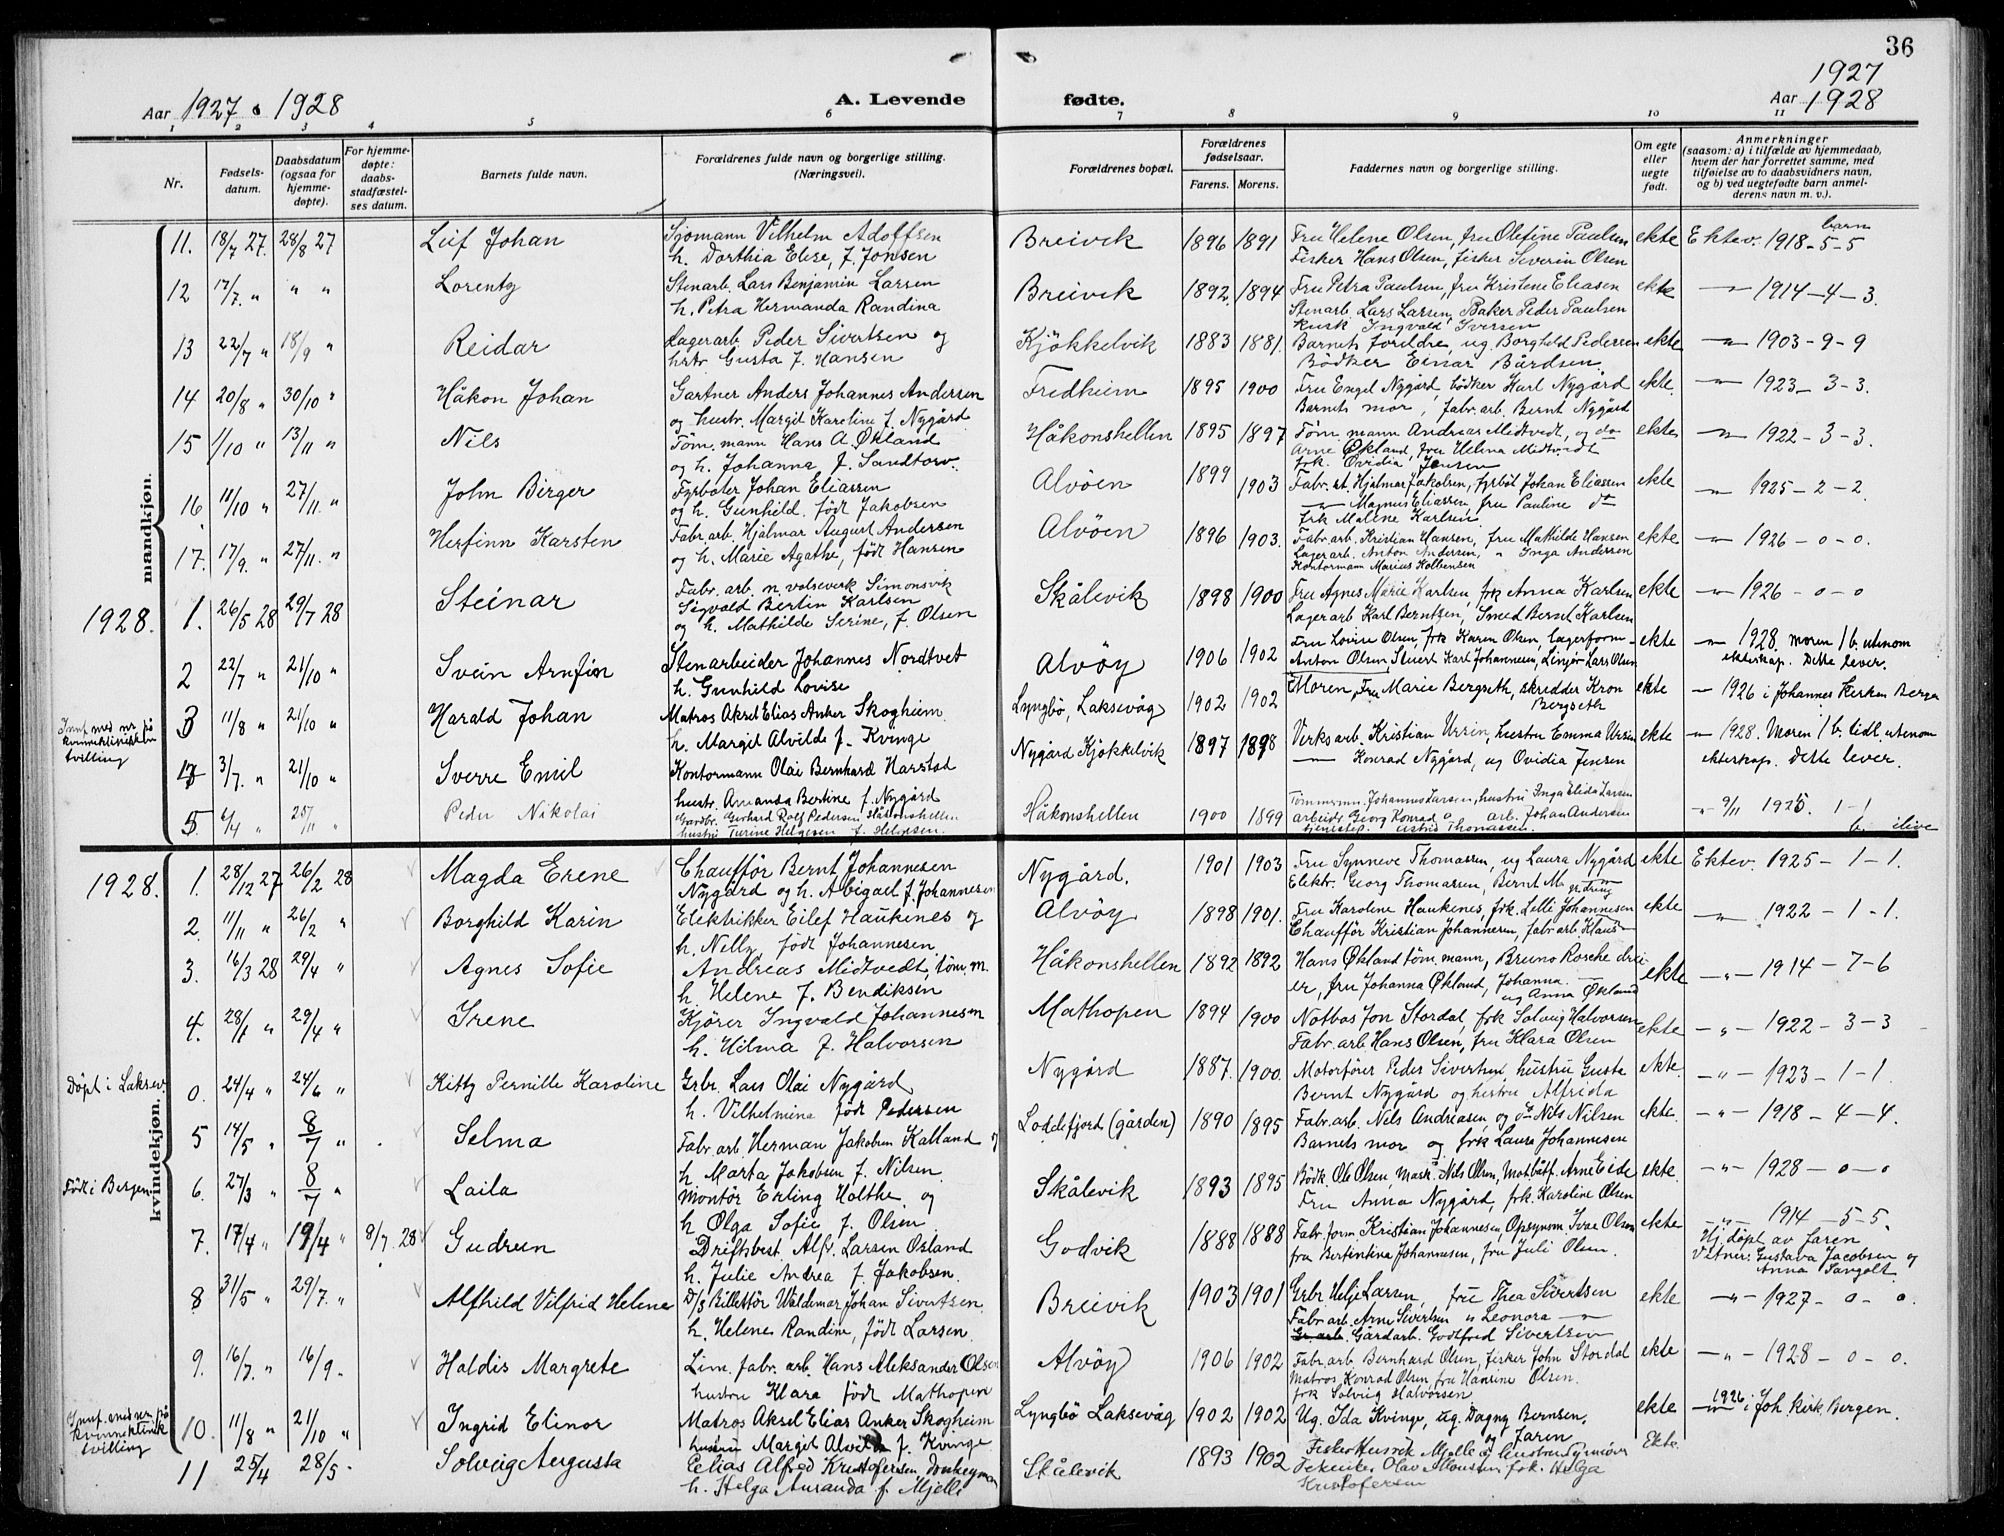 36
Aar 1927 & 1928
A. Levende fødte.
1927
Aar 1928
1 2 3 4 5 6 7 8 9 10 11
Nr.
Fødsels-datum.
Daabsdatum (ogsaa for hjemme-døpte).
For hjemme-døpte: daabs-stadfæstel-ses datum.
Barnets fulde navn.
Forældrenes fulde navn og borgerlige stilling. (Næringsvei).
Forældrenes bopæl.
Forældrenes fødselsaar.
Farens. Morens.
Faddernes navn og borgerlige stilling.
Om egte eller uegte født.
Anmerkninger (saasom: a) i tilfælde av hjemmedaab, hvem der har forrettet samme, med tilføielse av to daabsvidners navn, og b) ved uegtefødte barn anmel-derens navn m. v.).
mandkjøn.
11. 18/7 27. 28/8 27 Leif Johan Sjømann Vilhelm Adolfsen Breivik 1896 1891 Fru Helene Olsen, fru Olefine Paulsen ekte Ektev. 1918 - 5 - 5 barn
h. Dorthia Elise, f. Jonsen Fisker Hans Olsen, fisker Severin Olsen
12 17/7. " " " Lorentz Stenarb. Lars Benjamin Larsen Breivik 1892. 1894 Fru Petra Paulsen, fru Kristene Eliasen ekte — " — 1914 - 4 - 3.
h. Petra Hermanda Randina Stenarb. Lars Larsen, Baker Peder Paulsen
Kusk Ingvald Iversen
13 22/7 " 18/9 " Reidar Lagerarb. Peder Sivertsen og Kjökkelvik 1883 1881. Barnets foreldre, ug. Borghild Pedersen ekte — " — 1903 - 9 - 9
hstr Gusta f. Hansen Bödker Einar Bårdsen
14 20/8 " 30/10 " Håkon Johan Gartner Anders Johannes Andersen Fredheim 1895 1900 Fru Engel Nygård, bödker Karl Nygård ekte. — " — 1923 - 3 - 3.
og hustr. Margit Karoline f. Nygård Barnets mor, fabr. arb. Bernt Nygård
15 1/10 " 13/11 " Nils Töm. mann Hans A. Økland Håkonshellen 1895 1897 Töm. mann Andreas Midtvedt, og do ekte — " — 1922 - 3 - 3.
og h. Johanna f. Sandtorv. Arne Økland, fru Helena Midtvedt
frk. Ovidia Jensen
16 11/10 " 27/11. " John Birger Fyrböter Johan Eliassen Alvöen 1899 1903 Fabr. st. Hjalmar Jakobsen, fyrböt Johan Eliassen ekte — " — 1925 - 2 - 2.
og h. Gunhild. född Jakobsen — " — Magnus Eliassen, fru Pauline do
frk Malene Karlsen
17. 17/9. " 27/11. " Herfinn Karsten Fabr arb. Hjalmar August Andersen Alvöen 1896 1903. Fabr. arb. Kristian Hansen, fru Mathilde Hansen ekte — " — 1926 - 0 - 0.
og h. Marie Agathe, född Hansen Lager arb. Anton Andersen, " Inga Andersen
Kontormann Marius Kolbensen
1928. 1. 26/5 28 29/7 28 Steinar Fabr. arb. n. valseverk Simonsvik Skålevik 1898 1900 Fru Agnes Marie Karlsen, frk Anna Karlsen ekte — " — 1926 - 0 - 0
Sigvald Bertin Karlsen Lager arb Karl Berntzen, Smed Bernt Karlsen
og h. Mathilde Serine, f. Olsen
2 22/7 " 21/10 " Svein Arnfin Stenarbeider Johannes Nordtvet Alvöy 1906 1902 Fru Lovise Olsen, frk Karen Olsen, lagerform- ekte — " — 1928. moren 1 b. utenom
h. Gunhild Lovise Anton Olsen, Stuert Karl Johannesen, Linjør Lars Olsen ekteskap. Dette lever.
Innf. med nr. på kvinneklinikken tvilling 3 11/8 " 21/10 " Harald Johan Matros Aksel Elias Anker Skogheim Lyngbö, Laksevåg 1902 1902 Moren, Fru Marie Bergseth, skredder Kron ekte — 1926 i Johannes Kirken Bergen
h. Margit Alvilde f. Kvinge Bergseth
4 3/7. " 21/10 " Sverre Emil Kontormann Olai Bernhard Harstad Nygård Kjökkelvik 1897 1898 Verks arb. Kristian Ursin, hustru Emma Ursin ekte — " — 1928. Moren 1 b. tidl. utenom
hustr. Amanda Bertine f. Nygård — " — Konrad Nygård, ug Ovidia Jensen ekteskap. Dette lever.
5. 6/4 " 25/11 " Peder Nikolai Gardbr. Gerhard Rolf Pedersen Håkonshellen Håkonshellen 1900 1899 Tömmermn. Johannes Larsen, hustru Inga Elida Larsen " 9/11 1925. 1 - 1
hustru Turine Helgesen f. Helgesen. arbeider Georg Konrad o arb. Johan Andersen b. ilive
tjenestep. Astrid Thomassen.
kvindekjøn.
1928. 1. 28/12 27 26/2 28 Magda Erene Chaufför Bernt Johannesen Nygård. 1901 1903 Fru Synneve Thomassen, ug Laura Nygård ekte Ektev. 1925 - 1 - 1.
Nygård og h. Abigael f. Johannesen Elektr. Georg Thomassen, Bernt M.
2. 11/11 " 26/2 " Borghild Karin Elektrikker Eilef Haukenes og Alvöy 1898 1901. Fru Karoline Haukenes, frk. Lelli Johannesen ekte — " — 1922 - 1 - 1.
h. Nelly, född Johannesen Chaufför Kristian Johannesen, fabr arb. Klaus —
3. 16/3 28 29/4 " Agnes Sofie Andreas Midtvedt, töm. m. Håkonshellen 1892 1892 Hans Økland töm. mann, Bruno Rosche drei- ekte — " — 1914 - 7 - 6
h. Helene f. Bendiksen er, fru Johanna Økland, Johanna —
ug Anna Økland
4. 28/1 " 29/4 " Irene Kjörer Ingvald Johannesen Mathopen 1894 1900 Notbas Jon Stordal, frk Solveig Halvorsen ekte — " — 1922 - 3 - 3
h. Hilma f. Halvorsen Fabr. arb Hans Olsen, fru Klara Olsen
Döpt i Laksev. 0. 24/4 " 24/6 " Kitty Pernille Karoline Grbr. Lars Olai Nygård Nygård 1887. 1900. Motorförer Peder Sivertsen hustru Gusta ekte. — " — 1923 - 1 - 1.
h. Vilhelmina född Pedersen Bernt Nygård og hustru Alfrida
5 14/5 " 8/7 " Selma Fabr arb Herman Jakobsen Kalland og Loddefjord (gården) 1890 1895 Fabr. arb. Nils Andreasen og do Nils Nilsen ekte. — " — 1918 - 4 - 4.
h. Marta Jakobsen f. Nilsen. Barnets mor og frk Laura Johannesen
Född i Bergen 6. 27/3 " 8/7 " Laila Montör Erling Holthe og Skålevik 1893 1895 Bödk. Ole Olsen, Mask. Nils Olsen, Motbåtf. Arne Eide ekte. — " — 1928 - 0 - 0
h Olga Sofie f. Olsen Fru Anna Nygård, frk. Karoline Olsen
7. 17/4 " 19/4 " 8/7. 28 Gudrun Driftsbest. Alfr. Larsen Osland Godvik 1888 1888 Fabr. form. Kristian Johannesen, Opsynsm. Ivar Olsen ekte — " — 1914 - 5 - 5.
h. Julie Andrea f. Jakobsen. fru Bertintina Johannesen, fru Juli Olsen. Hj. döpt av faren
Vitner: Gustava Jacobsen og
Anna Sangolt
8 31/5 " 29/7. " Alfhild Vilfrid Helene D/S Billettör Waldemar Johan Sivertsen Breivik 1903 1901 Grbr Helje Larsen, fru Thea Sivertsen ekte — " — 1927 - 0 - 0.
h. Helene Randine, född Larsen. Fabr arb. Arne Sivertsen " Leonora — " —
Gr. arb. Gårdarb. Godtfred Sivertsen
9. 16/7. " 16/9. Haldis Margrete Lim. fabr. arb. Hans Aleksander Olsen Alvöy 1906 1902 Fabr. arb. Bernhard Olsen, fisker John Stordal ekte — " — 1928 - 0 - 0.
hustru Klara född Mathopen Matros Konrad Olsen, fru Hansine Olsen.
frk Solveig Halvorsen
Innf. med nr. på kvinneklinikk tvilling 10. 11/8 " 21/10 " Ingrid Elinor Matros Aksel Elias Anker Skogheim Lyngbö Laksevåg 1902 1902 Ug. Ida Kvinge, ug. Dagny Bernsen, ekte — 1926 i Joh. kirk. Bergen.
hustru Margit Alvilde f. Kvinge og faren
11 25/4 28/5 Solveig Augusta Elias Alfred Kristofersen, Donkeyman Skålevik 1893 1902 Fisker Henrik Mjelle og hustru ekte
h. Helga Amanda f. Mjelle Tekniker Olav Monsen frk. Helga
Kristofersen